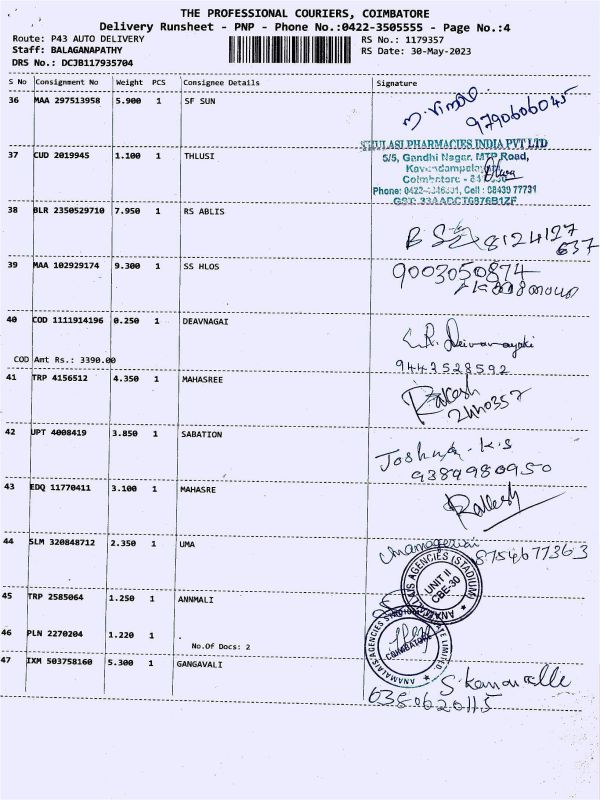 THE PROFESSIONAL COURIERS, COIMBATORE
Delivery Runsheet - PNP - Phone No.:0422-3505555 - Page No.:4
Route: P43 AUTO DELIVERY RS No.: 1179357
Staff: BALAGANAPATHY RS Date: 30-May-2023
DRS No.: DCJB117935704
S No Consignment No Weight PCS Consignee Details Signature
36 MAA 297513958 5.900 1 SF SUN
9790606045
THULASI PHARMACIES INDIA PVT LTD
37 CUD 2019945 1.100 1 THLUSI 5/5, Gandhi Nagar, MTP Road,
Coimbatore -
Cell : 08439 77731
38 BLR 2350529710 7.950 1 RS ABLIS
8124127
637
39 MAA 102929174 9.300 1 SS HLOS 9003050874
40 COD 1111914196 0.250 1 DEAVNAGAI
COD Amt Rs.: 3390.00 9443528592
41 TRP 4156512 4.350 1 MAHASREE Rakesh
2440357
42 UPT 4008419 3.850 1 SABATION Joshua. K.S
9389980950
43 EDQ 11770411 3.100 1 MAHASRE Rakesh
44 SLM 320848712 2.350 1 UMA 8754677363
AGENCIES (STADIUM)
UNIT II
CBE-30
45 TRP 2585064 1.250 1 ANNMALI
46 PLN 2270204 1.220 1
No.Of Docs: 2
ANAMALAIS AGENCIES PRIVATE LIMITED
COIMBATORE
47 IXM 503758160 5.300 1 GANGAVALI
6380620115